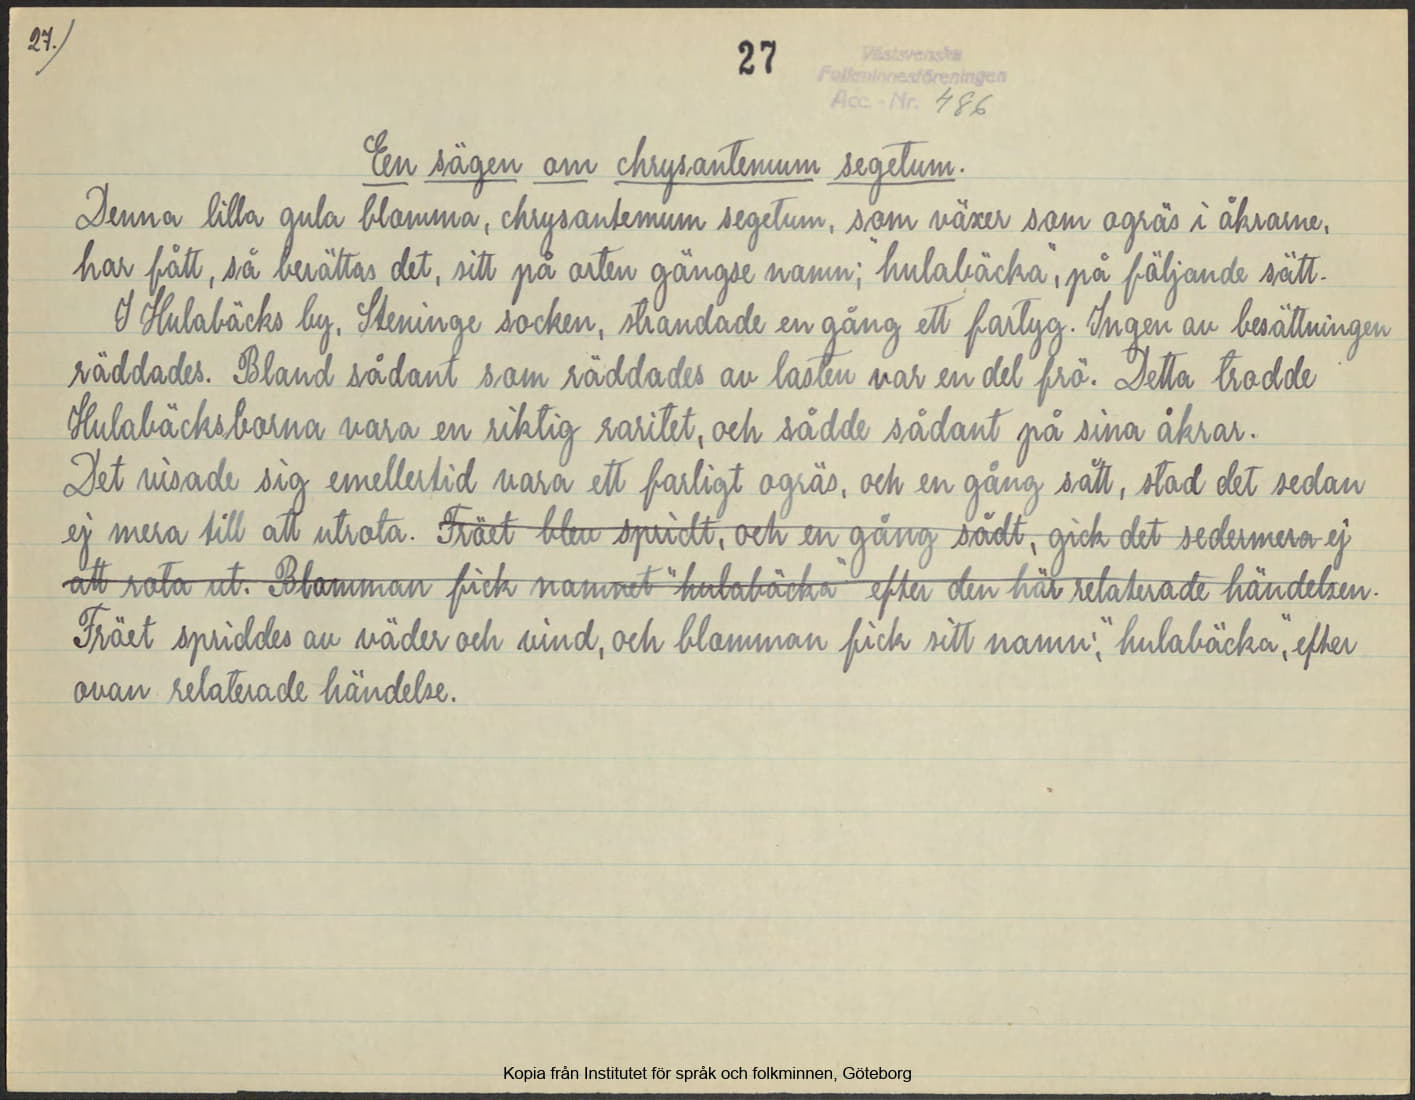 27.)
27
Västsvenska
Folkminnesföreningen
Acc. - Nr. 486
Een sägen om chrysantemum segetum.
Denna lilla gula blomma, chrysantemum segetum, som växer som ogräs i åkrarne,
har fått, så berättas det, sitt på orten gängse namn; "hulabäcka", på följande sätt.
I Hulabäcks by, Steninge socken, strandade en gång ett fartyg. Ingen av besättningen
räddades. Bland sådant som räddades av lasten var en del frö. Detta trodde
Hulabäcksborna vara en riktig raritet, och sådde sådant på sina åkrar.
Det visade sig emellertid vara ett farligt ogräs, och en gång sått, stod det sedan
ej mera till att utrota. Fröet blev spridt, och en gång sådt, gick det sedermera ej
att rota ut. Blomman fick namnet "hulabäcka" efter den här relaterade händelsen.
Fröet spriddes av väder och vind, och blomman fick sitt namn; "hulabäcka", efter
ovan relaterade händelse.
Kopia från Institutet för språk och folkminnen, Göteborg